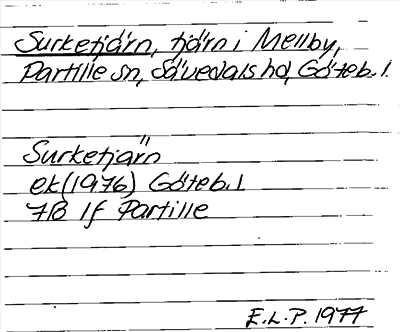 Surketjärn, tjärn i Mellby,
Partille sn, Sävedals hd, Göteb. l.
Surketjärn
ek (1976) Göteb. l.
7B 1f Partille
E.L.P. 1977